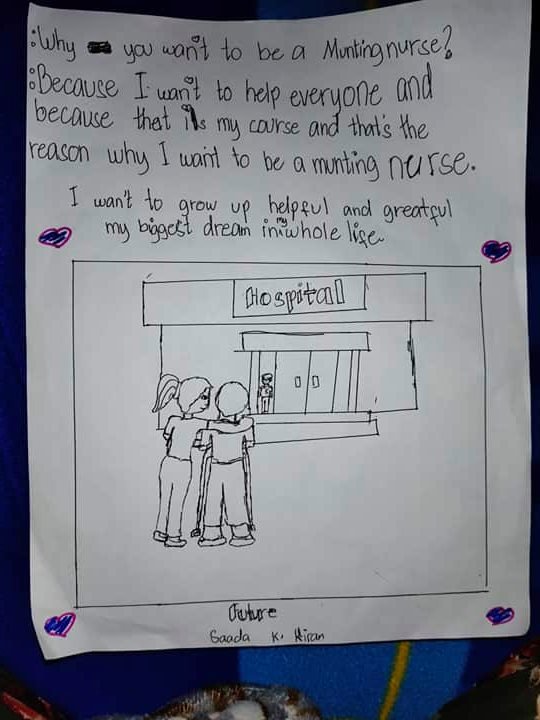 :Why you want to be a Munting nurse?
:Because I want to help everyone and
because that is my course and that's the
reason why I want to be a munting nurse.
I wan't to grow up helpful and greatful
my biggest dream in my whole life
Hospital
Future
Saada K. Hiran